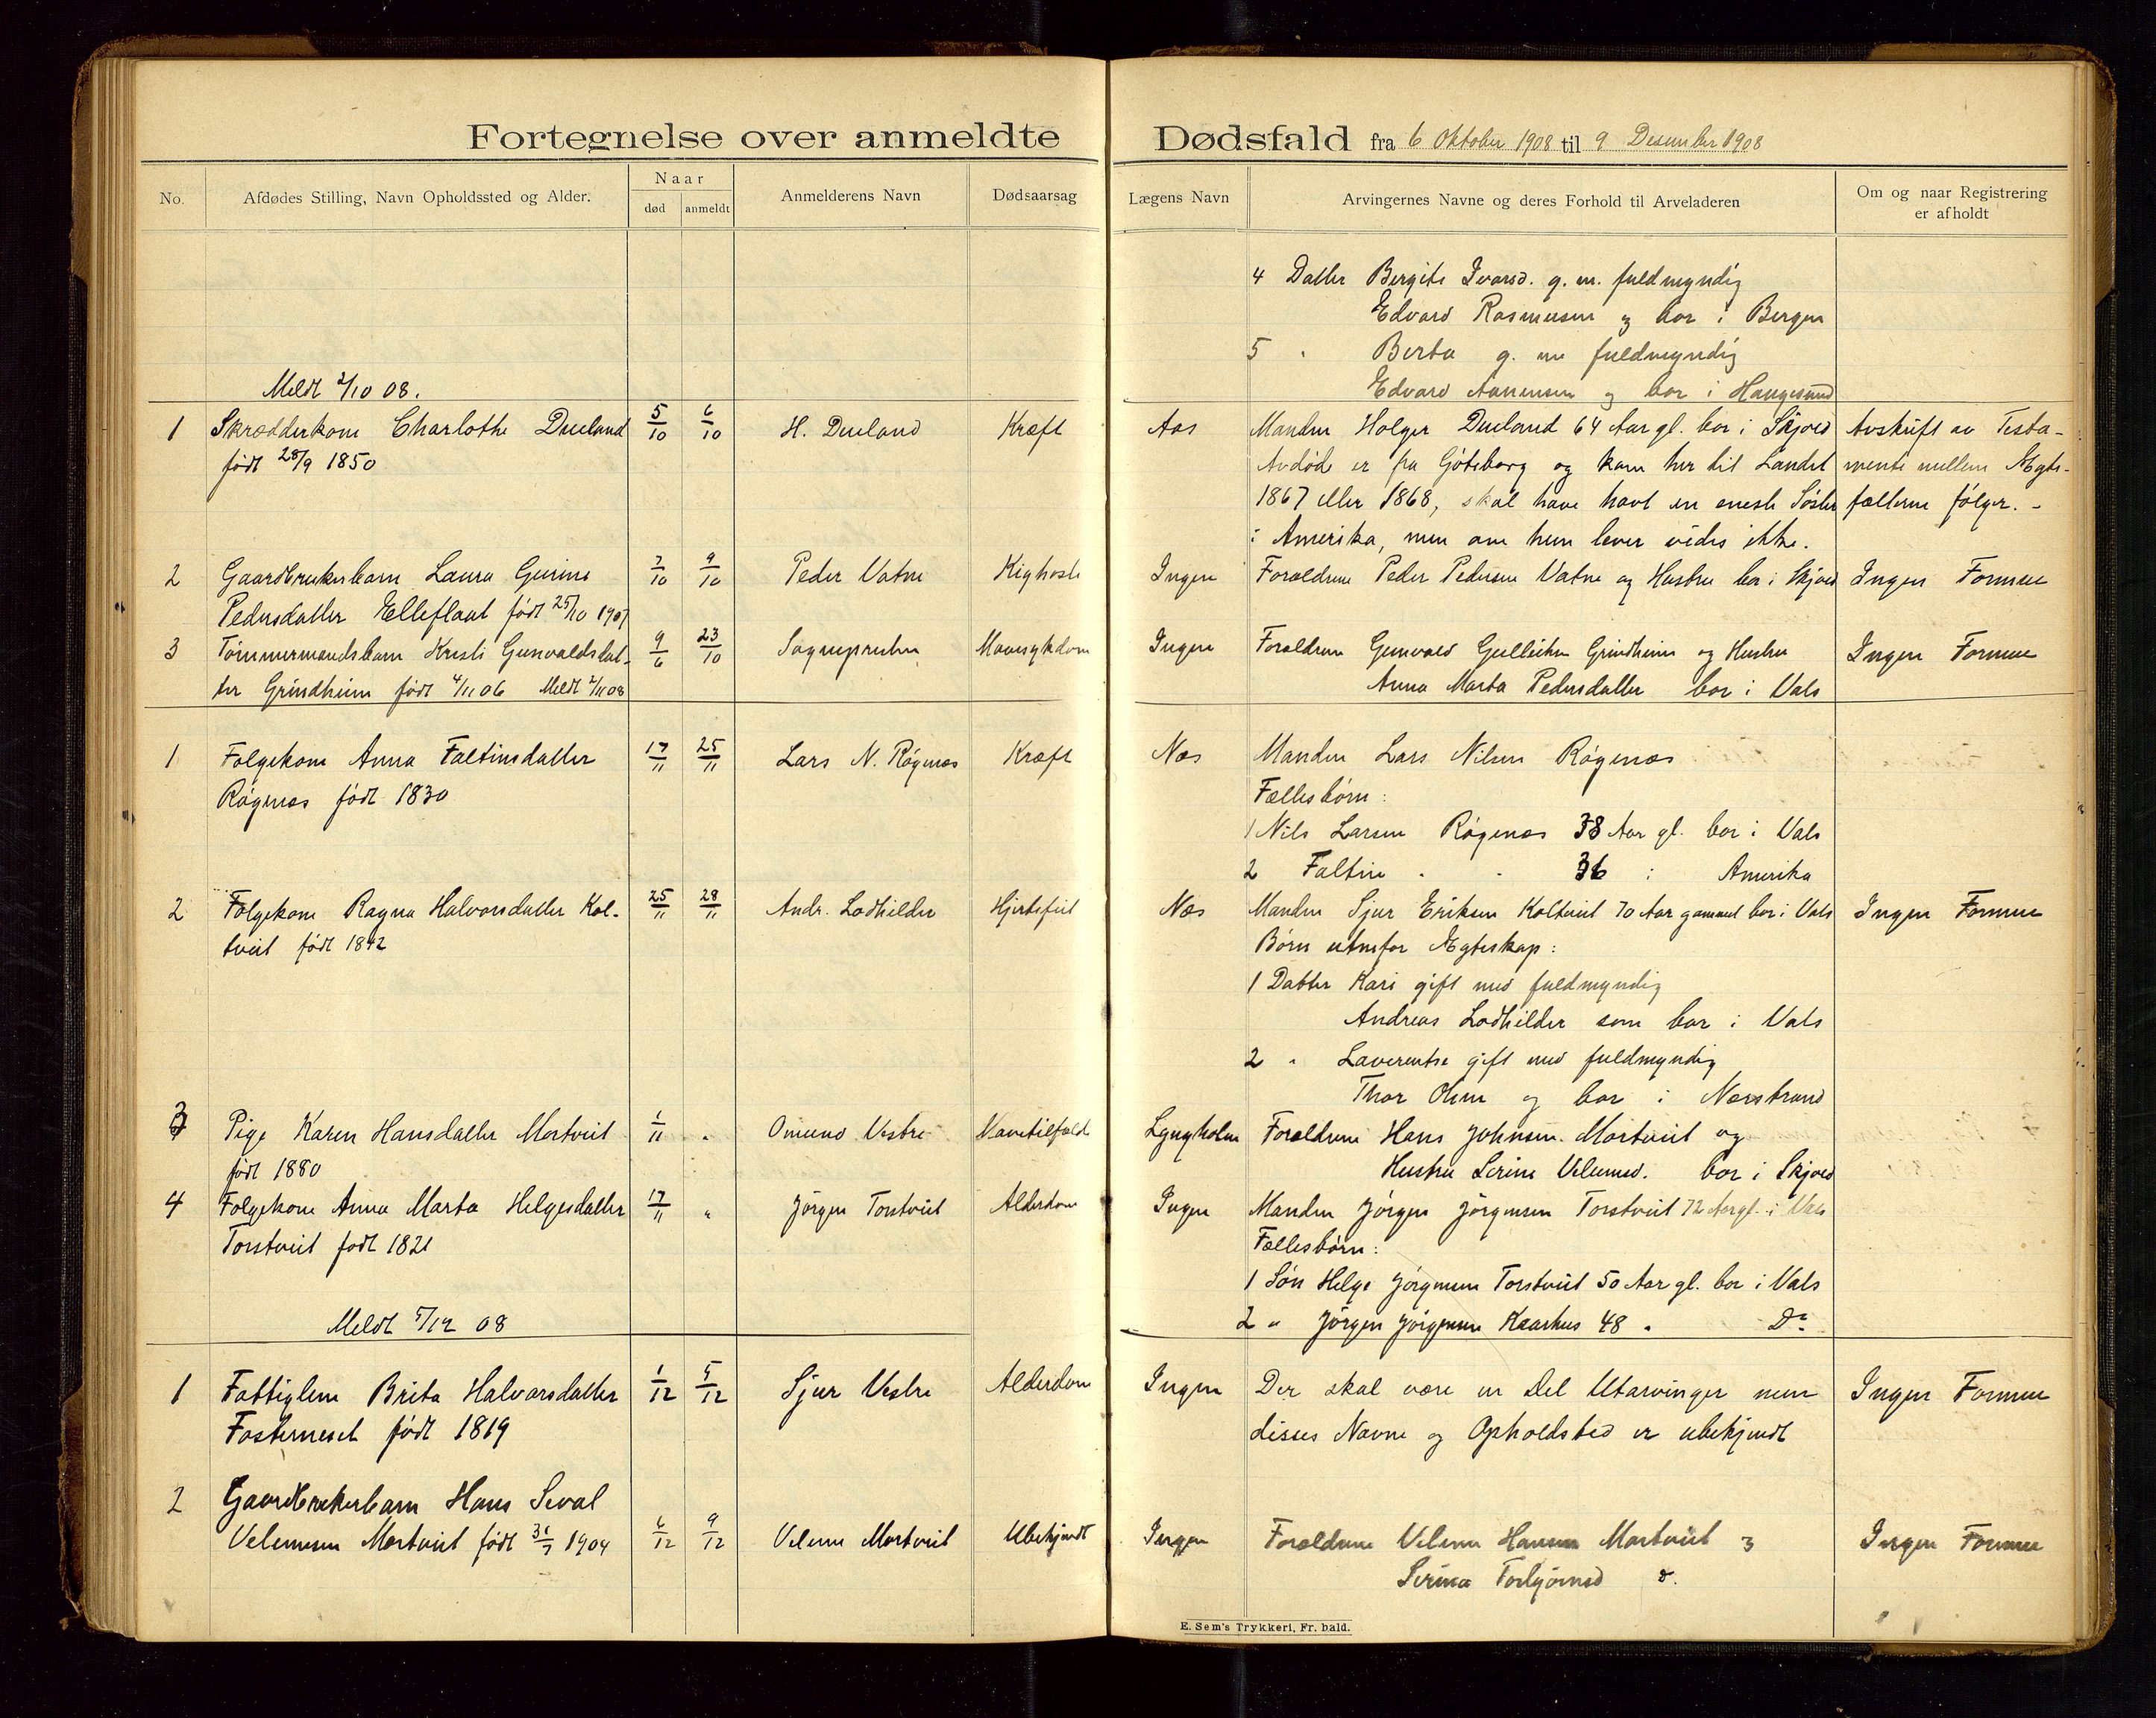 Fortegnelse over anmeldte Dødsfald fra 6 Oktober 1908 til 9 Desember 1908
No. Afdødes Stilling, Navn Opholdssted og Alder. Naar død anmeldt Anmelderens Navn Dødsaarsag Lægens Navn Arvingernes Navne og deres Forhold til Arveladeren Om og naar Registrering er afholdt
4 Datter Bergite Ivarsd. g. m. fuldmyndig
Edvard Rasmussen og bor i Bergen
5 " Berta g. m fuldmyndig
Meldt 2/10 08. Edvard Aanensen og bor i Haugesund
1 Skrædderkone Charlothe Dueland 5/10 6/10 H. Dueland Kræft Aas Manden Holger Dueland 64 Aar gl. bor i Skjold Avskrift av Testa-
født 28/9 1850 Avdøde er fra Gøteborg og kom her til Landet mente mellem Ægte-
1867 eller 1868, skal have havt en eneste Søster fællerne følger. -
i Amerika, men om hun lever vides ikke.
2 Gaardbrukerbarn Laura Gurine 7/10 9/10 Peder Vatne Kighoste Ingen Forældrene Peder Pedersen Vatne og Hustru bor i Skjold Ingen Formue
Pedersdatter Elleflaat født 25/10 1907
3 Tømmermandsbarn Kristi Gunvaldsdat- 9/6 23/10 Sognepresten Mavesykdom Ingen Forældrene Gunvald Gullichsen Grindheim og Hustru Ingen Formue
ter Grindheim født 4/11 06 Meldt 2/11 08 Anna Marta Pedersdatter bor i Vats
1 Folgekone Anna Faltinsdatter 17/11 25/11 Lars N. Røgenæs Kræft Næs Manden Lars Nilsen Røgenæs
Røgenæs født 1830 Fællesbørn:
1 Nils Larsen Røgenæs 38 Aar gl. bor i Vats
2 Faltin " " 36 : Amerika
2 Folgekone Ragna Halvorsdatter Kol- 25/11 28/11 Andr. Lodhilder Hjertefeil Næs Manden Sjur Eriksen Koltveit 70 Aar gammel bor i Vats Ingen Formue
tveit født 1842 Børn utenfor Ægteskap:
1 Datter Kari gift med fuldmyndig
Andreas Lodhilder som bor i Vats
2 " Laverentse gift med fuldmyndig
Thor Olsen og bor i Nerstrand
3 Pige Karen Hansdatter Mortveit 1/11 " Omund Vestre Vanetilfælde Lyngholm Forældrene Hans Johnsen Mortveit og
født 1880 Hustru Serine Velemsd. bor i Skjold
4 Folgekone Anna Marta Helgesdatter 17/11 " Jørgen Torstveit Alderdom Ingen Manden Jørgen Jørgensen Torstveit 72 Aar gl. i Vats
Torstveit født 1821 Fællesbørn:
1 Søn Helge Jørgensen Torstveit 50 Aar gl. bor i Vats
Meldt 5/12 08 2 " Jørgen Jørgensen Kaarhus 48 " Do
1 Fattiglem Brita Halvorsdatter 1/12 5/12 Sjur Vestre Alderdom Ingen Der skal være en Del Utarvinger men Ingen Formue
Fosterneset født 1819 disses Navne og Opholdsted er ubekjendt
2 Gaardbrukerbarn Hans Seval
Velemsen Mortveit født 31/7 1904 6/12 9/12 Velem Mortveit Ubekjendt Ingen Forældrene Velem Hansen Mortveit og Ingen Formue
Serina Torbjørnsd do.
E. Sem's Trykkeri, Fr. hald.